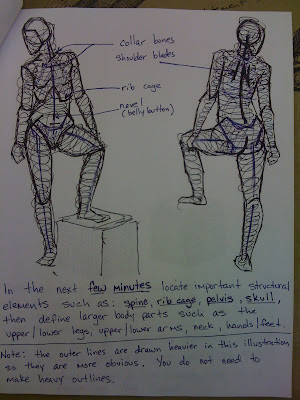 collar bones
shoulder blades
rib cage
navel
(bellybutton)
In the next few minutes locate important structural
elements such as: spine, rib cage, pelvis, skull,
then define larger body parts such as the
upper/lower legs, upper/lower arms, neck, hands/feet.
Note: the outer lines are drawn heavier in this illustration
so they are more obvious. You do not need to
make heavy outlines.